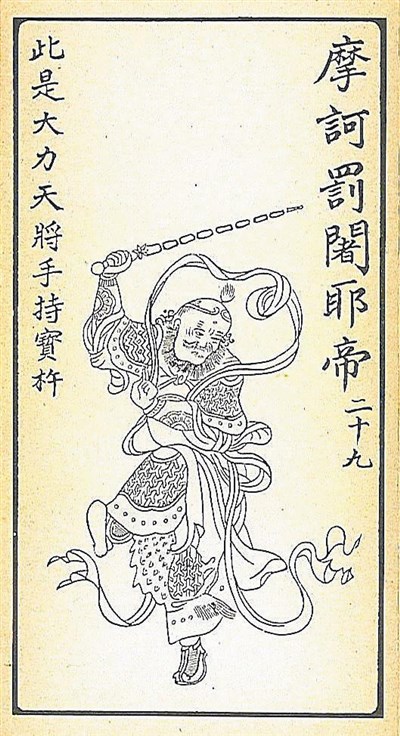 摩訶罰闍耶帝 二十九
此是大力天將手持寶杵